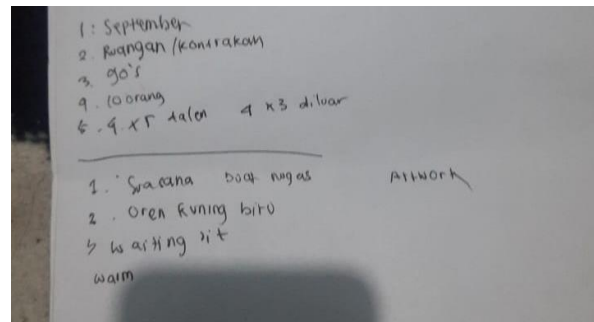 1 : September
2. Ruangan / kontrakan
3. 90's
4. 10 orang
5. 4 x 5 dalen 4 x 3 diluar
1. Suacana buat nugas Artwork
2. Oren kuning biru
3 waiting
warm